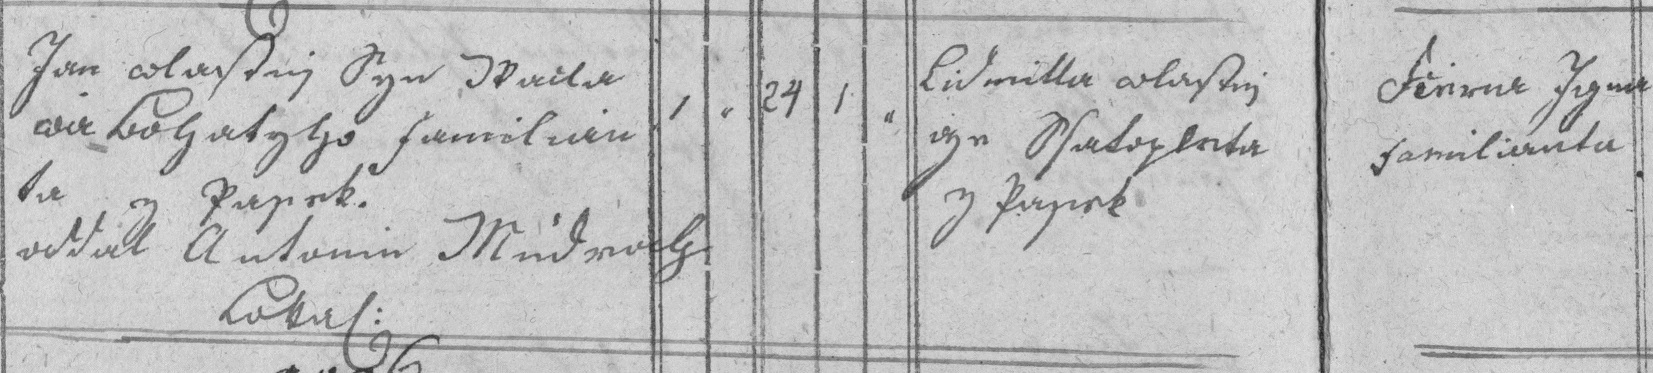 Jan wlastnj Syn Wacla
wa Bohatyho familian
ta z Pasek.
oddal Antonin Mudroch
Lokal:
1 " 24 1 "
Lidmilla wlastnj
Sstatopluka
z Pasek
Jigna
familianta